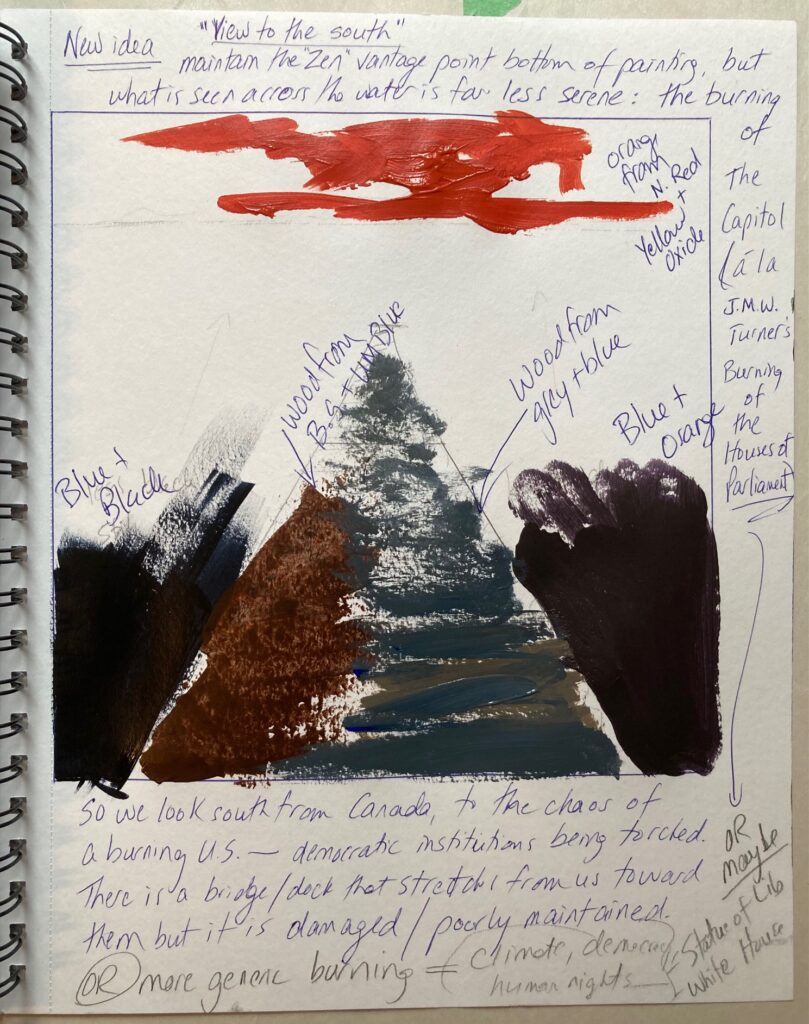 New idea
"View to the south"
maintain the "Zen" vantage point bottom of painting, but
what is seen across the water is far less serene: the burning
of
The
Capitol
(á la
J.M.W.
Turner's
Burning
of
the
Houses of
Parliament
orange
from
N. Red
+
Yellow
Oxide
Wood from
B.S. + UM Blue
Wood from
grey + blue
Blue +
Black
Blue +
Orange
So we look south from Canada, to the chaos of
a burning U.S. — democratic institutions being torched.
There is a bridge/deck that stretches from us toward
them but it is damaged / poorly maintained.
OR more generic burning = (climate, democracy,
human rights —
OR
maybe
Statue of Lib
White House